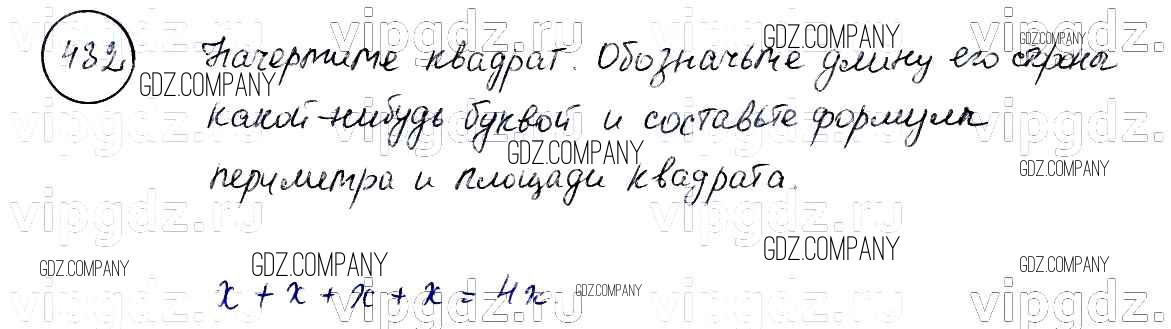 432 Начертите квадрат. Обозначьте длину его стороны
какой-нибудь буквой и составьте формулы
периметра и площади квадрата.
x + x + x + x = 4x.
vipgdz.ru
GDZ.COMPANY